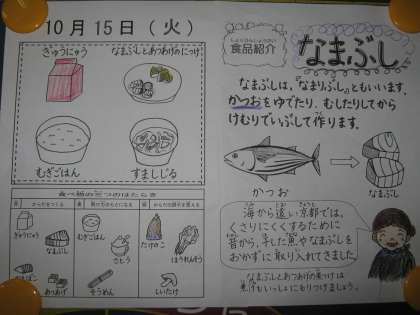 10月15日(火)
ぎゅうにゅう
なまぶしとあつあげのにつけ
むぎごはん
すましじる
食べ物の三つのはたらき
ぎゅうにゅう
なまぶし
あつあげ
むぎごはん
さとう
そうめん
たけのこ
ほうれんそう
しいたけ
しょくひんしょうかい
食品紹介
なまぶし
なまぶしは、『なまりぶし』ともいいます。
かつおをゆでたり、むしたりしてから
けむりでいぶして作ります。
かつお
なまぶし
海から遠い京都では、
くさりにくくするために
昔から、干した魚やなまぶしを
おかずに取り入れてきました。
なまぶしとあつあげの煮つけは
煮汁もいっしょにもりつけましょう。